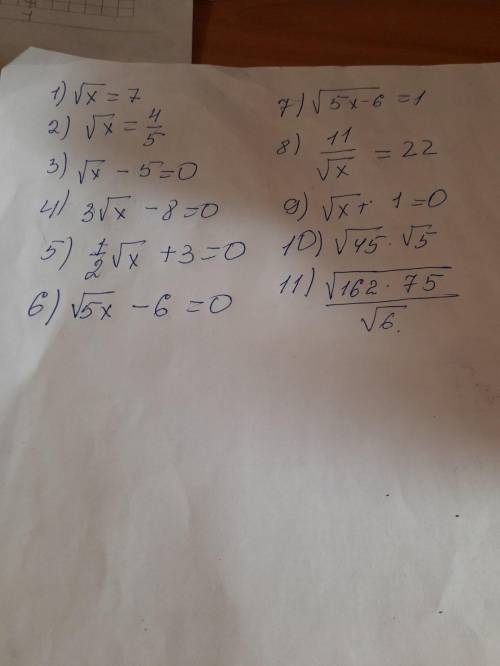 1) √x = 7
2) √x = 4/5
3) √x - 5 = 0
4) 3√x - 8 = 0
5) 1/2 √x + 3 = 0
6) √5x - 6 = 0
7) √5x-6 = 1
8) 11/√x = 22
9) √x + 1 = 0
10) √45 · √5
11) √162 · 75 / √6.